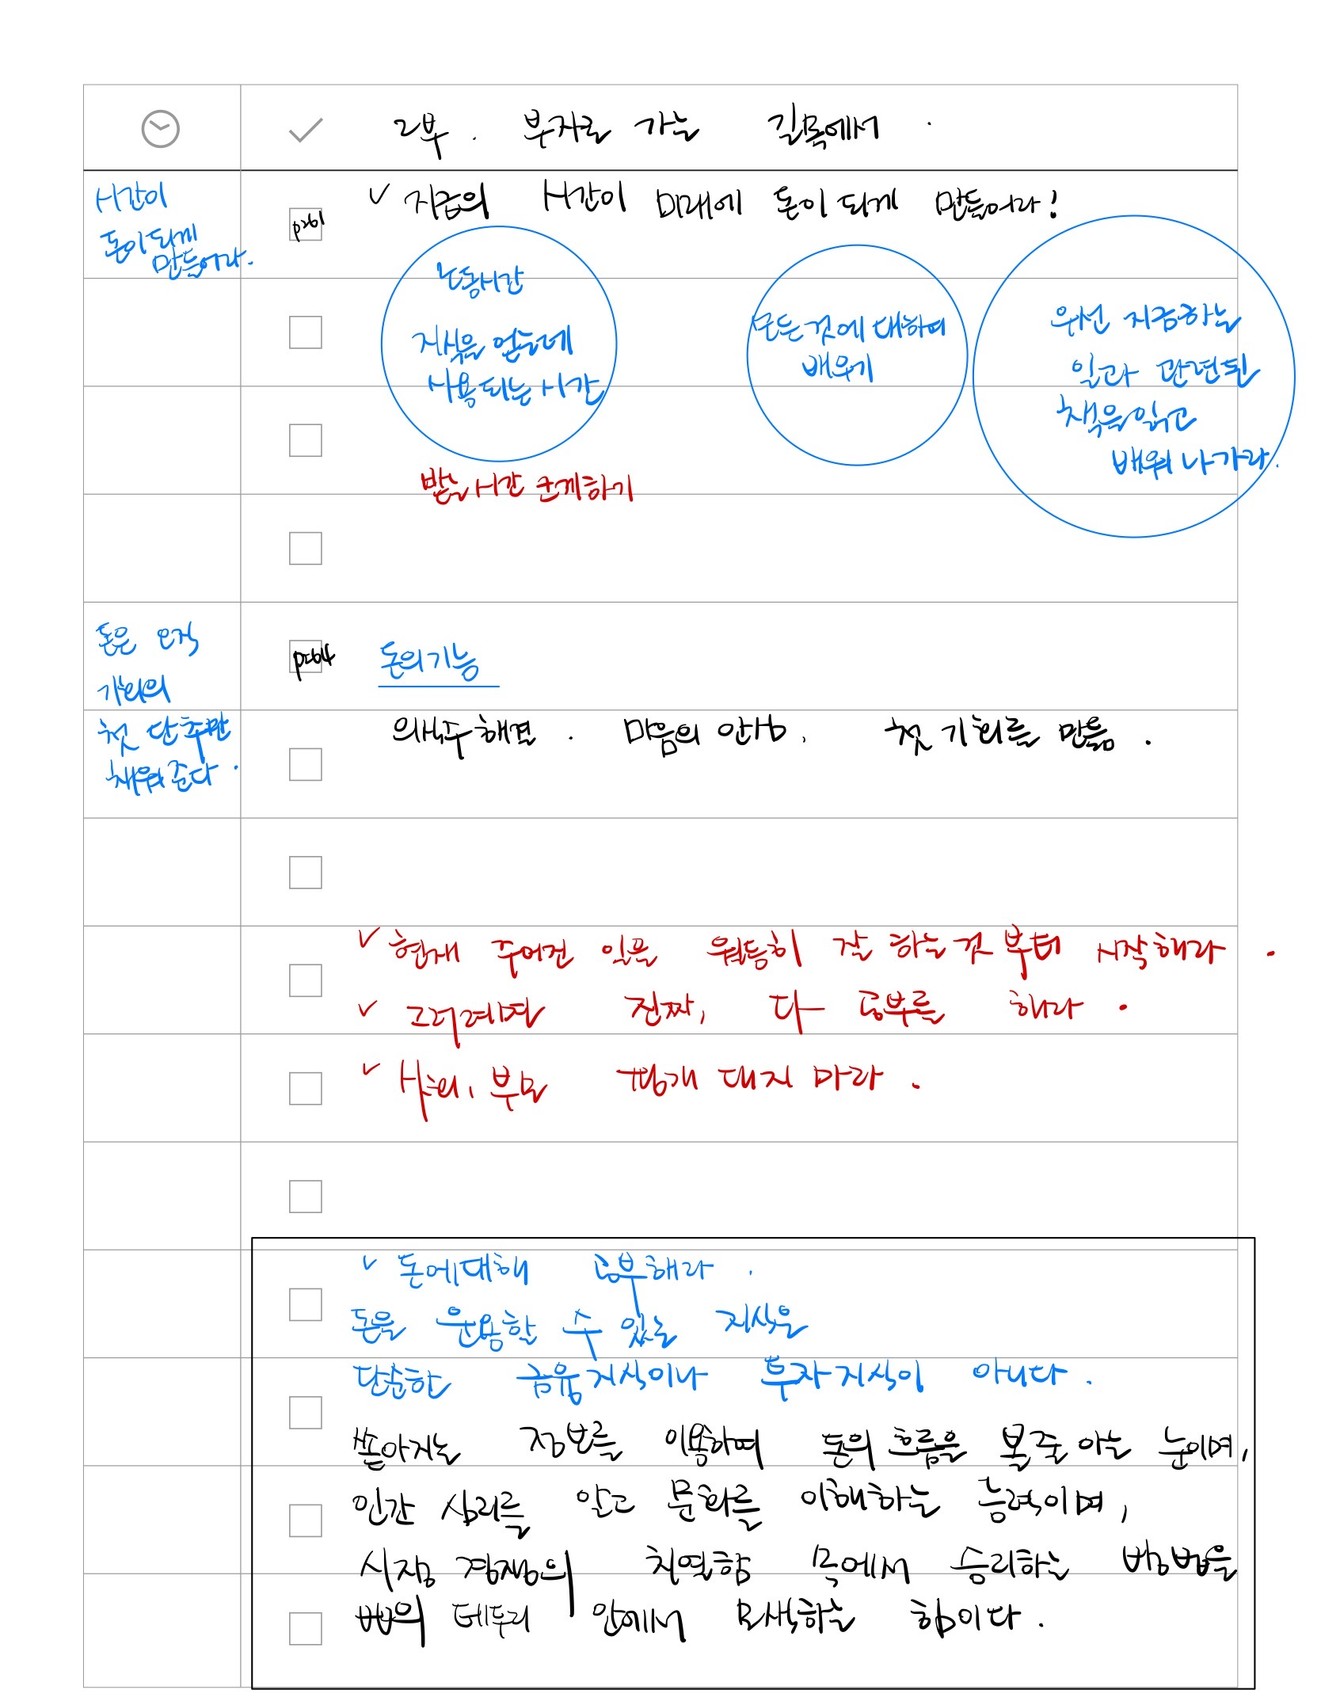 2부. 부자로 가는 길목에서.
시간이
돈이 되게
만들어라.
p261
✓ 지금의 시간이 미래에 돈이 되게 만들어라!
노동시간
지식을 얻는데
사용되는 시간
모든 것에 대하여
배우기
우선 지금하는
일과 관련된
책을 읽고
배워 나가라.
받는 시간 크게하기
돈은 오직
기회의
첫 단추만
채워준다.
p264
돈의 기능
의식주해결. 마음의 안식, 첫 기회를 만듦.
✓ 현재 주어진 일을 월등히 잘 하는것 부터 시작해라.
✓ 그러려면 진짜, 다 공부를 해라.
✓ 사회, 부모 핑개 대지 마라.
✓ 돈에대해 공부해라.
돈을 운용할 수 있는 지식은
단순한 금융지식이나 투자지식이 아니다.
쏟아지는 정보를 이용하여 돈의 흐름을 볼줄 아는 눈이며,
인간 심리를 알고 문화를 이해하는 능력이며,
시장 경쟁의 치열함 속에서 승리하는 방법을
법의 테두리 안에서 모색하는 힘이다.